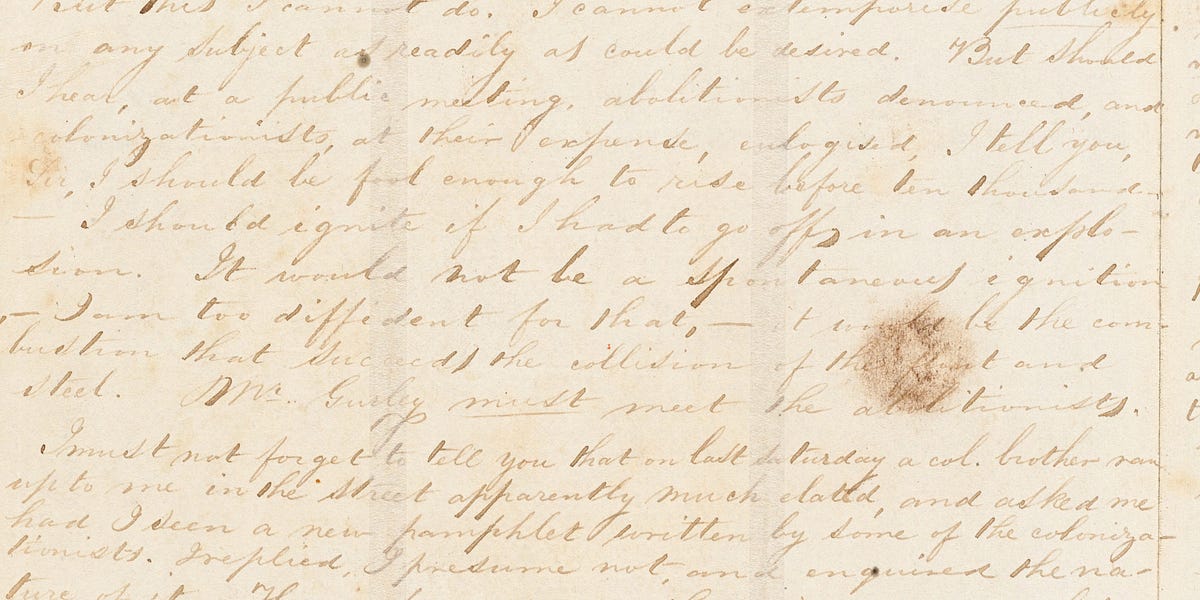 But this I cannot do. I cannot extemporise publicly
on any subject as readily as could be desired. But should
I hear, at a public meeting, abolitionists denounced, and
colonizationists, at their expense, eulogised, I tell you,
Sir, I should be fool enough to rise before ten thousand
— I should ignite if I had to go off in an explo-
sion. It would not be a spontaneous ignition
— I am too diffident for that, — it would be the com-
bustion that succeeds the collision of the flint and
steel. Mr. Gurley must meet the abolitionists.
I must not forget to tell you that on last saturday a col. brother ran
up to me in the street apparently much elated, and asked me
had I seen a new pamphlet written by some of the coloniza-
tionists. I replied, I presume not, and enquired the na-
ture of it.